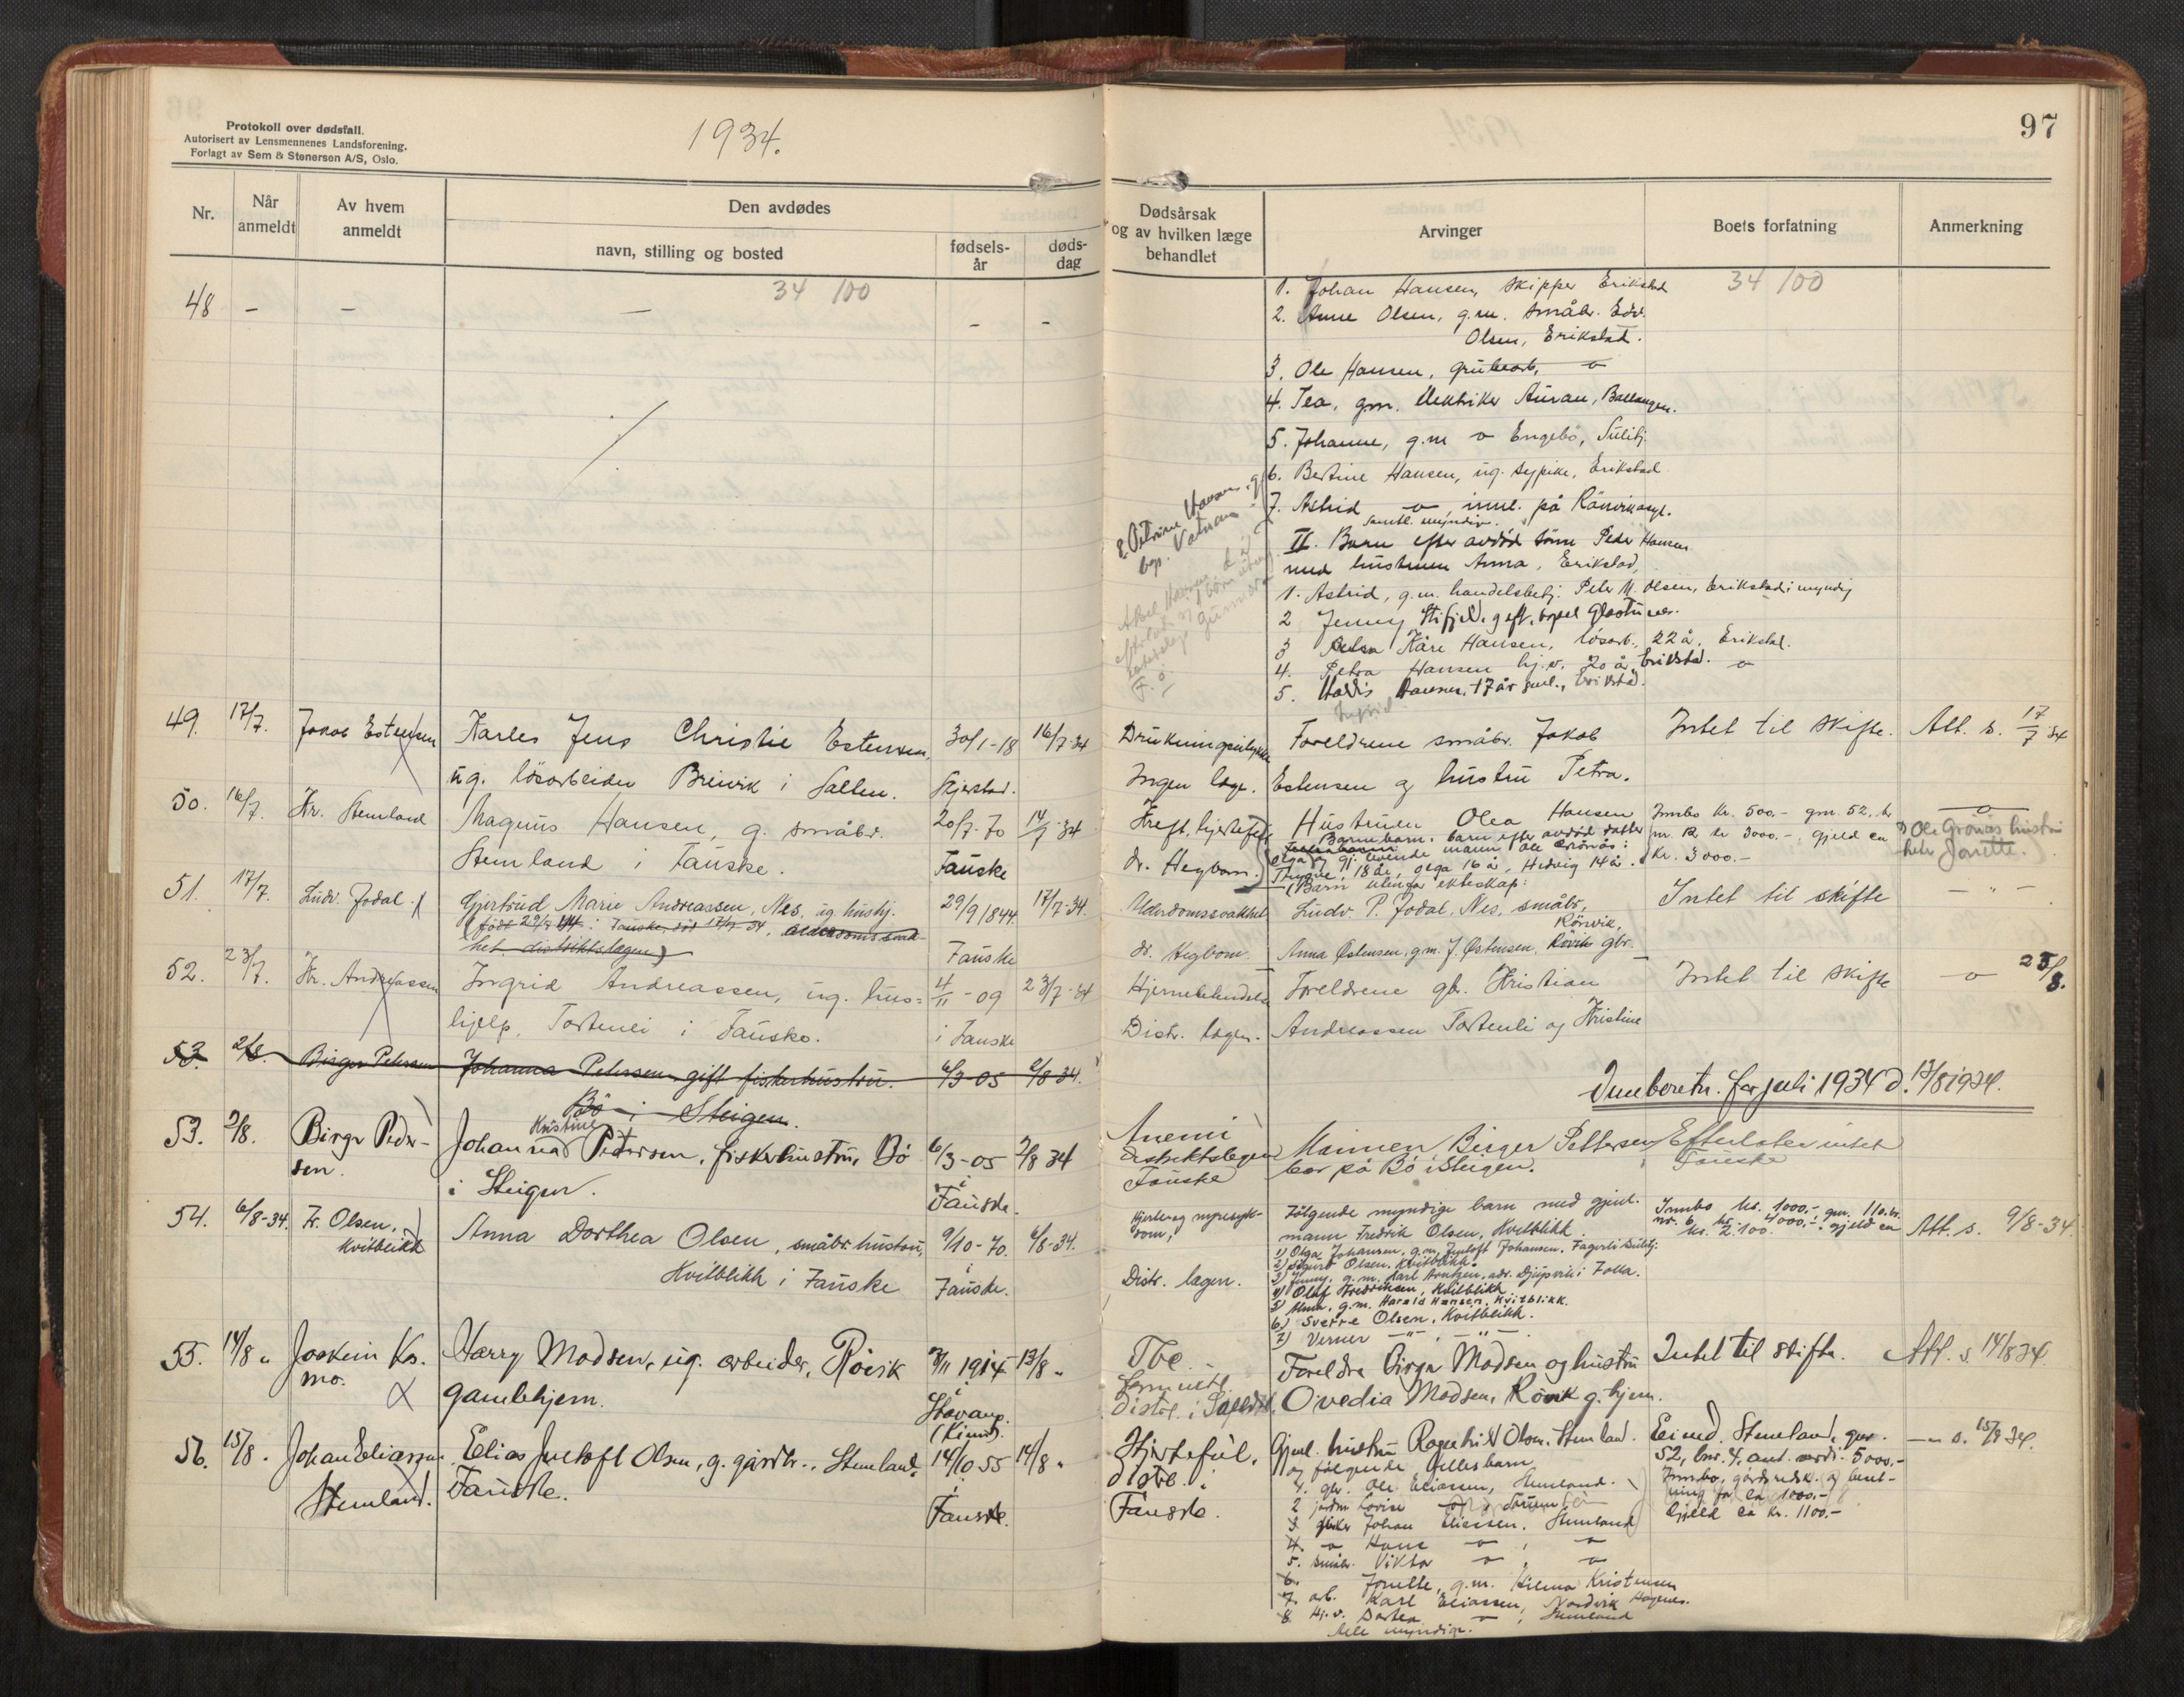 Protokoll over dødsfall.
Autorisert av Lensmennenes Landsforening.
Forlagt av Sem & Stenersen A/S, Oslo.
1934.
Nr.
Når anmeldt
Av hvem anmeldt
Den avdødes
navn, stilling og bosted
fødsels-år
døds-dag
34 100
48 - - - - -
49. 17/7. Jakob Estensen Karles Jens Christie Estensen, 30/1-18 16/7-34
ug. løsarbeider Breivik i Salten. Skjerstad.
50. 16/7. Kr. Stemland Magnus Hansen, g. småbr. 20/7-70 14/7-34
Stemland i Fauske. Fauske
51. 17/7. Ludv. Jodal. Gjertrud Marie Andreassen, Nes, ug. hushj. 29/9 1844. 17/7-34.
(født 29/9 44 i Fauske, død 17/7 34. Alderdomssvak-
het distriktslegen) Fauske
52. 23/7. Kr. Andreassen Ingrid Andreassen, ug. hus= 4/11-09 23/7-34
hjelp, Tortenli i Fauske. i Fauske
53. 2/8. Birger Petersen Johanna Petersen, gift fiskerhustru. 6/3-05 2/8-34.
Bø i Steigen.
53. 2/8. Birger Peder- Johanna Kristine Petersen, fiskerhustru, Bø 6/3-05 2/8 34
sen. i Steigen. i Fauske.
54. 6/8-34. Fr. Olsen, Anna Dorthea Olsen, småbr. hustru, 9/10-70. 6/8-34.
Kvitblikk Kvitblikk i Fauske i Fauske.
55. 14/8 " Joakim Ks. Harry Madsen, ug. arbeider, Røvik 1914 13/8 "
mo. gamlehjem. i Stavang. (Kinn).
56. 15/8. Johan Eliassen Elias Jentoft Olsen, g. gårdbr., Stemland, 14/10 55 14/8 "
Stemland. Fauske. i Fauske.
97
Dødsårsak og av hvilken læge behandlet
Arvinger
Boets forfatning
Anmerkning
34 100
1. Johan Hansen, skipper Erikstad
2. Anne Olsen, g.m. småbr. Edv.
Olsen, Erikstad.
3. Ole Hansen, grubearb,
4. Tea, gm. elektriker Auran, Ballangen.
5. Johanne, g.m Engebø, Sulitj.
6. Bertine Hansen, ug. sypike, Erikstad
7. Astrid innl. på Rønvik asyl.
samtl. myndige.
8. Petrine Hansen, g.
bop. Vatnan
II. Barn efter avdød sønn Peder Hansen
med hustruen Anna, Erikstad,
1. Astrid, g.m. handelsbetj. Peter M. Olsen, Erikstad, myndig
2 Jenny
3 Kåre Hansen, løsarb., 22 å, Erikstad.
4. Petra Hansen hj.v. 20 år, Erikstad.
5. Hansen, 17 år gml., Erikstad.
Ingrid
Drukningsulykke Foreldrene småbr. Jakob Intet til skifte. Att. s. 17/7 34
Ingen læge. Estensen og hustru Petra.
Kreft, hjertefeil, Hustruen Olea Hansen Innbo kr. 500,- gm. 52, br
Barnebarn, barn efter avdød datter nr. 12 kr 3000.-, gjeld ca
Olga og gj. levende mann Ole Grønås: kr. 3000.-
dr. Hegbom. Trygve, 18 år, Olga 16 år, Hedvig 14 år.
Ole Grønås hustru
heter Jonette.
Barn utenfor ekteskap:
Alderdomssvakhet Ludv. P. Jodal, Nes, småbr, Intet til skifte - " -
Rørvik,
dr. Hegbom. Anna Østensen, g.m. J. Østensen, Røvik gbr.
Hjernebetendelse Foreldrene gbr. Kristian Intet til skifte 25/8.
Distr. legen. Andreassen Tortenli og Kristine
Innberetn. for juli 1934 d. 13/8 1934.
Anemi Mannen Birger Pettersen Efterlater intet
Distriktslegen bor på Bø i Steigen. Fauske
Fauske
Hjerte og nyresyk- Følgende myndige barn med gjenl. Innbo kr. 1000,-, gm. 110. br.
dom, mann Fredrik Olsen, Kvitblikk nr. 6, kr. 4000,-, gjeld ca
kr. 2.100. Att. s. 9/8-34.
1) Olga Johansen, g.m. Jentoft Johansen, Fagerli Sulitj.
2) Sigurd Olsen, Kvitblikk
Distr. legen. 3) Jenny, g.m. Karl Arntzen, adr. Djupvik i Folla.
4) Olaf Fredriksen, Kvitblikk
5) Anna, g.m. Harald Hansen, Kvitblikk.
6) Sverre Olsen, Kvitblikk.
7) Verner - " - , - " -
Tbc. Foreldre Birger Madsen og hustru Intet til skifte. Att. s. 14/8 34.
Distrl. i Ovedia Madsen, Røvik g.hjem.
Hjertefeil, Gjenl. hustru Ragnhild Olsen, Stemland. Eiend. Stemland, gnr.
distr.l. i og følgende fellesbarn 52, bnr. 4, ant. verdi 5000,- - " - s. 15/8 34.
Fauske. 1. gbr. Ole Eliassen, Stemland. Innbo, gårdsredsk. og buset-
2 jordm Lovise ning for ca 1000.-
3 fisker Johan Eliassen, Stemland Gjeld ca kr. 1100.-
4. Hans
5. småbr. Viktor
6. Jonette, g.m. Hilmar Kristensen
7. arb. Karl Eliassen, Nordvik
8. Hj.v. Dortea , Stemland
Alle myndige.